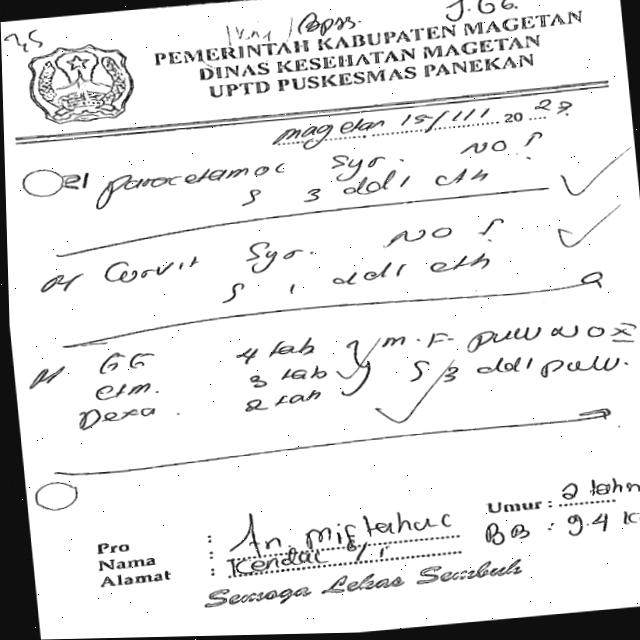 J. GG.
PEMERINTAH KABUPATEN MAGETAN
DINAS KESEHATAN MAGETAN
UPTD PUSKESMAS PANEKAN
magetan 15/III 20
paracetamol Syr. NO I
S 3 dd 1 cth
Curvit Syr. NO I
S 1 dd 1 cth
GG 4 tab m.f. pulv NO X
ctm. 3 tab S 3 dd 1 pulv.
Dexa. 2 tab
Umur : 2 tahn
BB : 9.4 K
Pro : An. miftahul
Nama : Kendal /1
Alamat :
Semoga Lekas Sembuh